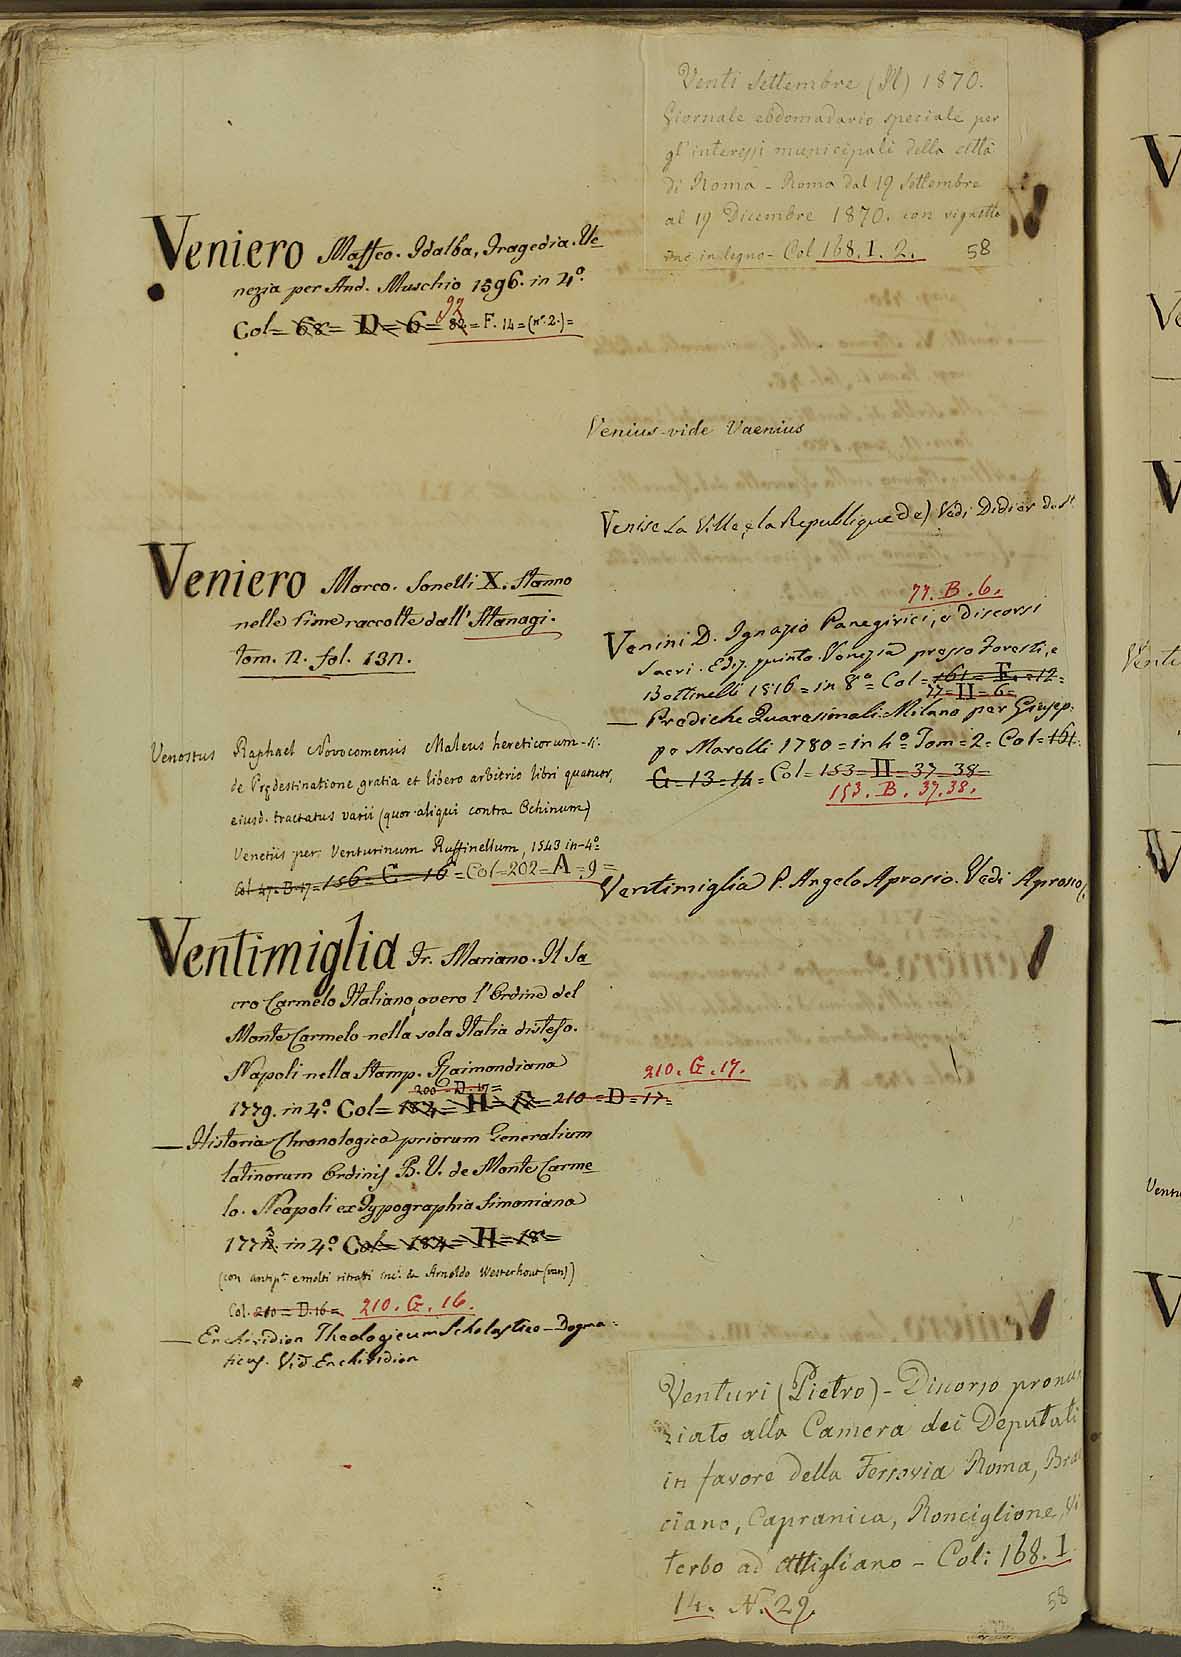 Veniero Maffeo. Idalba, Tragedia. Ve=
nezia per And. Muschio 1596. in 4º.
Col= 68= D= 6= 82= F. 14=(nº.2.)=
92
Veniero Marco. Sonetti X. Stanno
nelle rime raccolte dall' Atanagi.
tom. 2. fol. 132.
Venostus Raphael Novocomensis Maleus hereticorum - si.
de Prędestinatione gratia et libero arbitrio libri quatuor,
eiusd. tractatus varii (quor. aliqui contra Ochinum)
Venetiis per Venturinum Ruffinellum, 1543 in-4º=
Col. 47=B.17= 156= C= 16 = Col=202= A =9=
Ventimiglia Fr. Mariano. Il Sa=
cro Carmelo Italiano, overo l'Ordine del
Monte Carmelo nella sola Italia disteso.
Napoli nella Stamp. Raimondiana
200=D.17=
1779. in 4º. Col= 184= H= 17= 210=D=17=
210. G. 17.
— Historia Chronologica priorum Generalium
latinorum Ordinis B. V. de Monte Carme=
lo. Neapoli ex Typographia Simoniana
1773. in 4º. Col= 184= H= 18=
(con antip.ª e molti ritratti inc. da Arnoldo Westerhout (van))
Col. 210= D.16= 210. G. 16.
— Enchiridion Theologicum Scholastico-Dogma=
ticus. Vid. Enchiridion
Venti Settembre (Il) 1870.
Giornale ebdomadario speciale per
gl'interessi municipali della città
di Roma - Roma dal 19 Settembre
al 19 Dicembre 1870. con vignette
inc. in legno - Col 168. I. 2. 58
Venius vide Vaenius
Venise La Ville, e la Republique de) Vedi Didier de St.
77. B. 6.
Venini D. Ignazio Panegirici, e Discorsi
Sacri. Ediz. quinta. Venezia presso Foresti, e
Bettinelli 1816= in 8º= Col= 161= E.=12=
77= H= 6=
— Prediche Quaresimali. Milano per Giusep=
pe Marelli 1780= in 4º= Tom=2= Col= 161=
G= 13=14= Col= 153= H= 37=38=
153. B. 37.38.
Ventimiglia P. Angelo Aprosio. Vedi Aprosio
Venturi (Pietro) - Discorso pronun
ziato alla Camera dei Deputati
in favore della Ferrovia Roma, Brac
ciano, Capranica, Ronciglione, Vi
terbo ad Attigliano - Col: 168. I
14. N. 29. 58